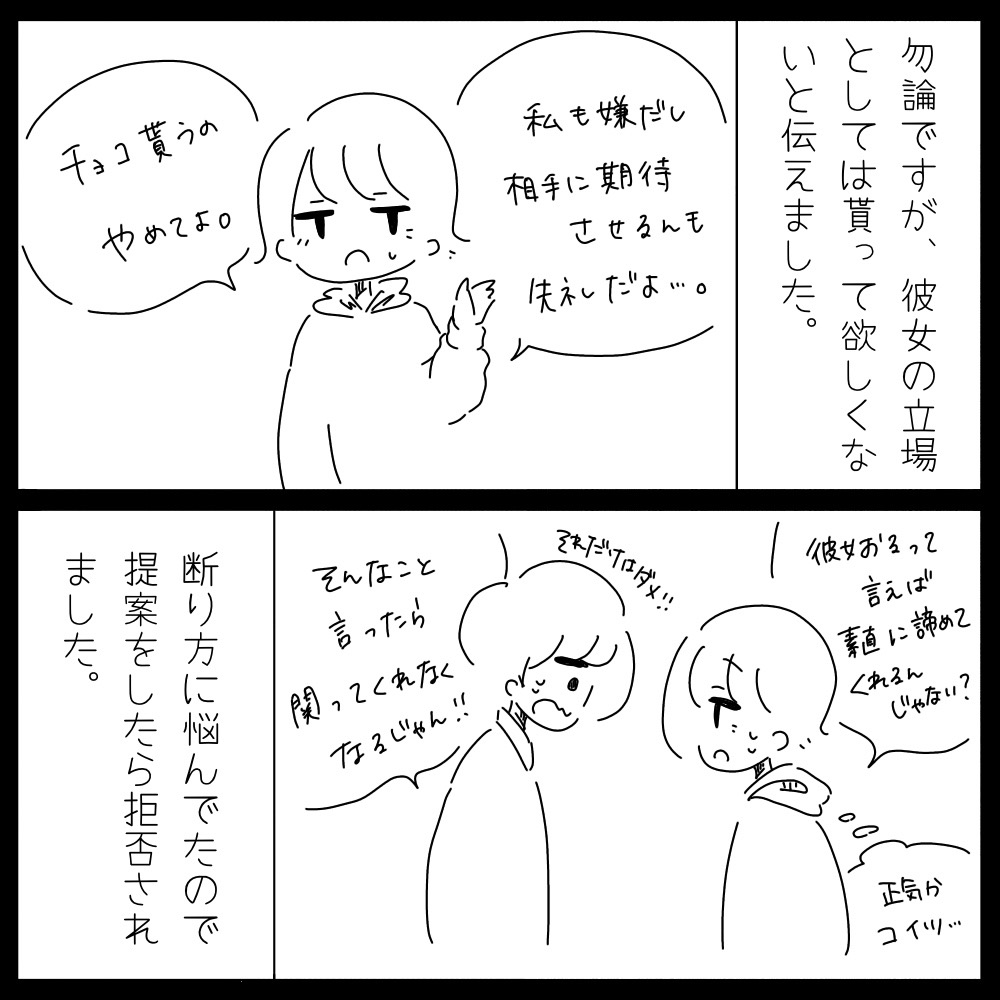 勿論ですが、彼女の立場
としては貰って欲しくな
いと伝えました。
私も嫌だし
相手に期待
させるんも
失礼だよ…。
チョコ貰うの
やめてよ。
彼女おるって
言えば
素直に諦めて
くれるん
じゃない?
正気か
コイツ…
それだけはダメ!!
そんなこと
言ったら
関ってくれなく
なるじゃん!!
断り方に悩んでたので
提案をしたら拒否され
ました。